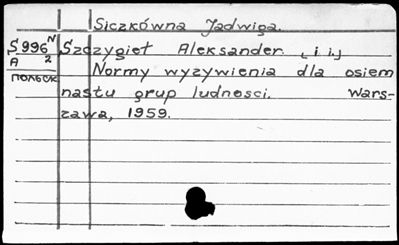 Siczkówna Jadwiga.
S 996 N Szczygieł Aleksander [i i.]
A 2
польск Normy wyzywienia dla osiem
nastu grup ludnosci. Wars-
zawa, 1959.